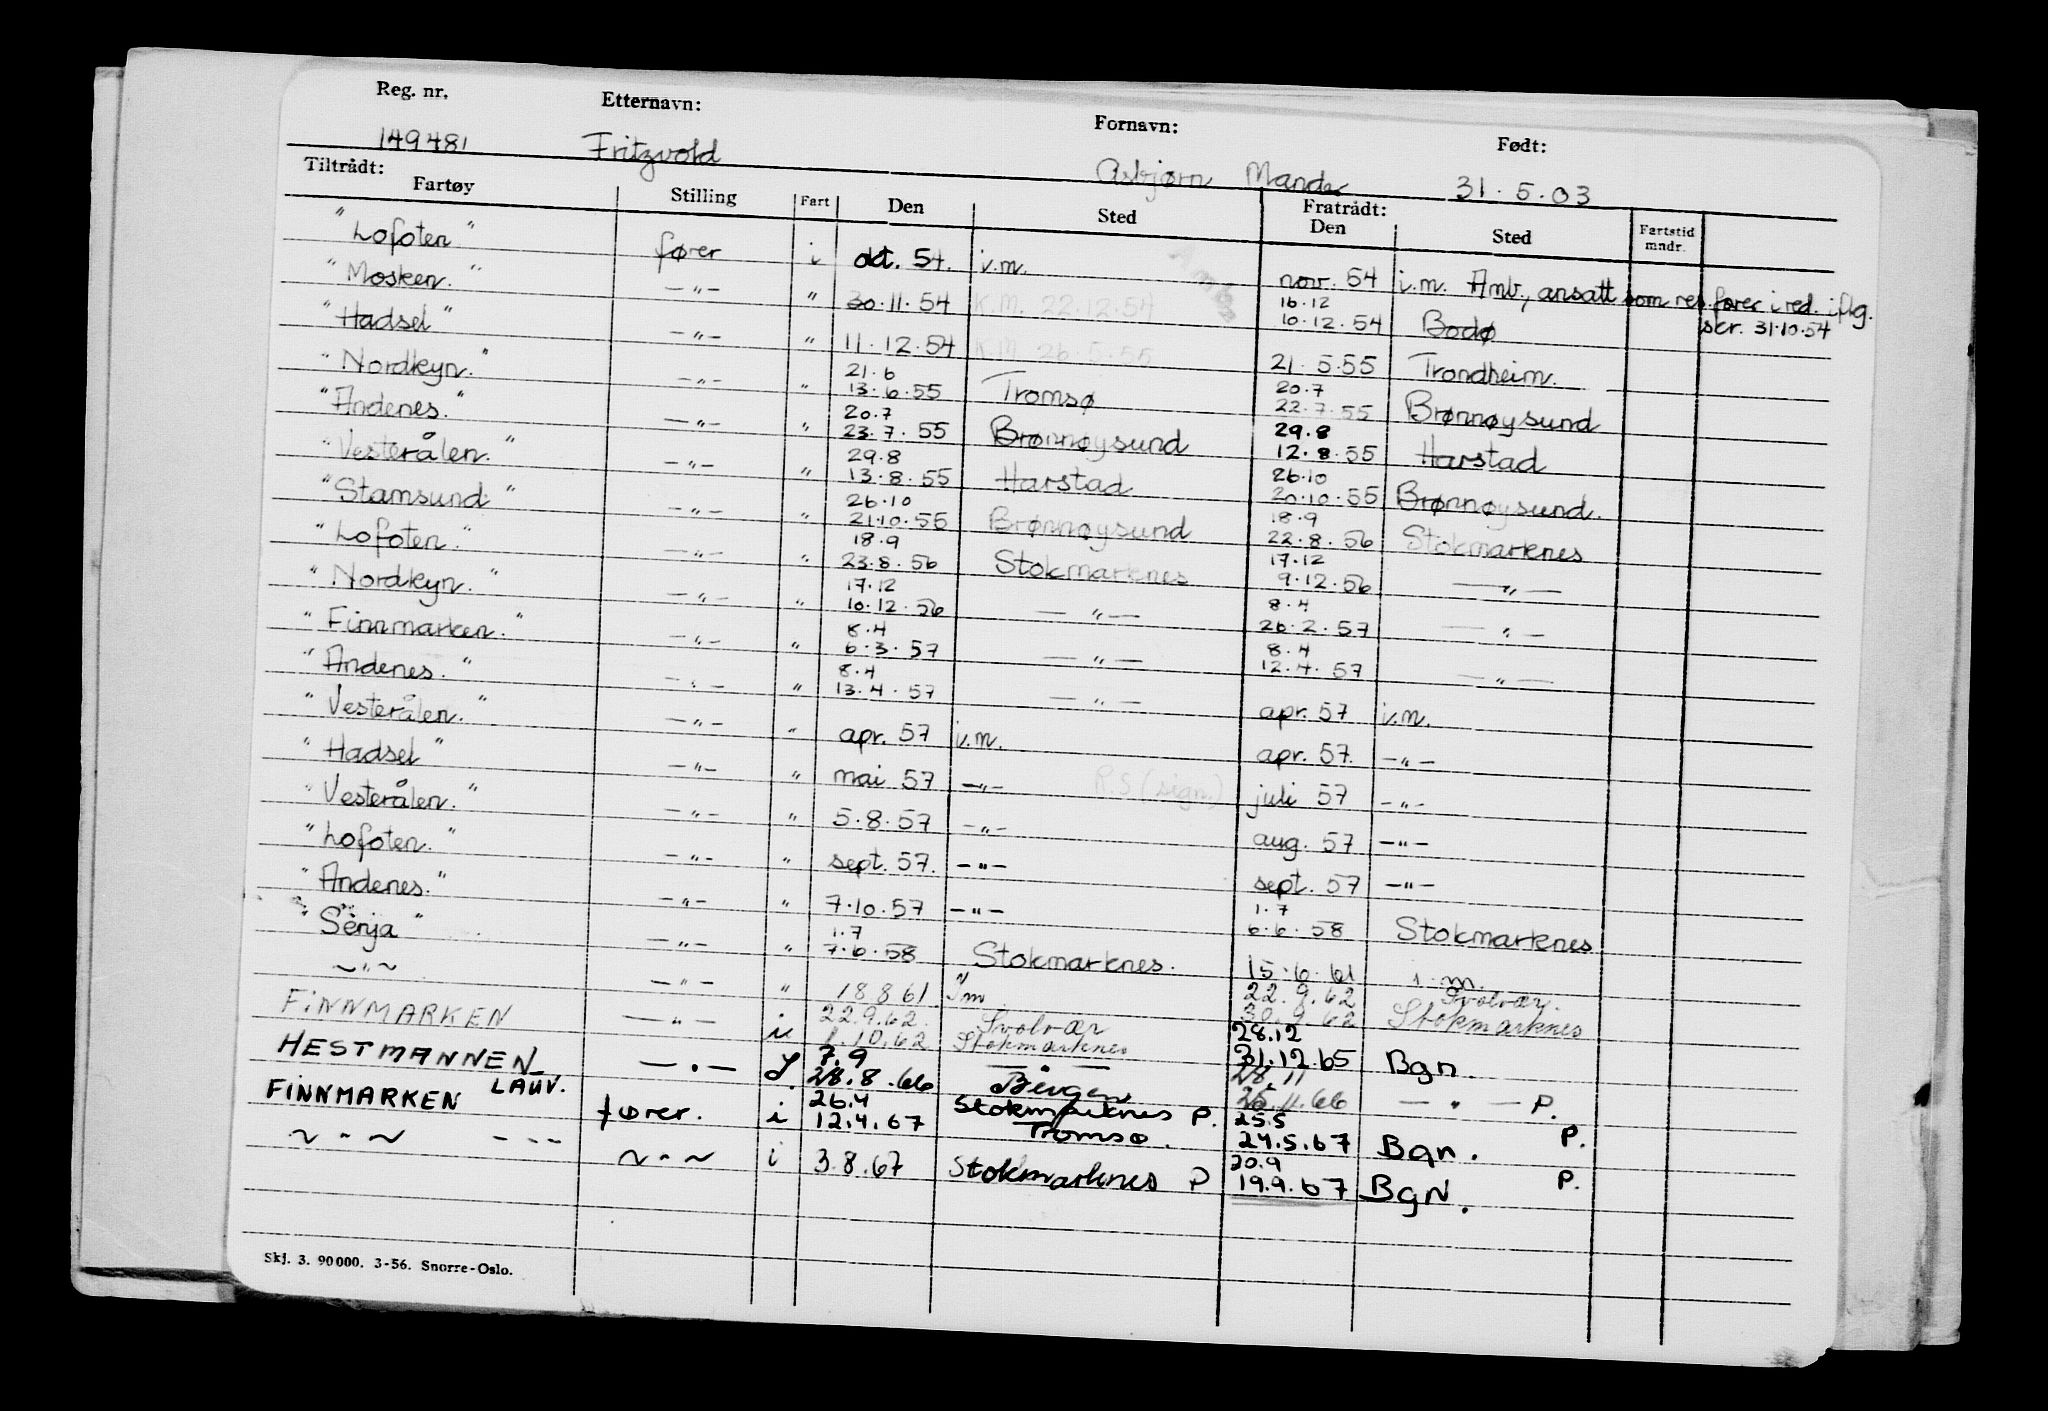 Reg. nr. Etternavn: Fornavn: Født:
149481 Fritzvold Asbjørn 31.5.03
Tiltrådt: Fratrådt:
Fartøy Stilling Fart Den Sted Den Sted Fartstid mndr.
"Lofoten" fører i okt. 54. i.m. nov. 54 i.m. Anb., ansatt som res. fører i red. iflg.
scr. 31.10.54
"Mosken." —"— " 30.11.54 K.M. 22.12.54 16.12 10.12.54 Bodø
"Hadsel" —"— " 11.12.54 K.M. 26.5.55 21.5.55 Trondheim.
"Nordkyn." —"— " 21.6 13.6.55 Tromsø 20.7 22.7.55 Brønnøysund
"Andenes." —"— " 20.7 23.7.55 Brønnøysund 29.8 12.8.55 Harstad
"Vesterålen." —"— " 29.8 13.8.55 Harstad 26.10 20.10.55 Brønnøysund.
"Stamsund" —"— " 26.10 21.10.55 Brønnøysund 18.9 22.8.56 Stokmarknes
"Lofoten." —"— " 18.9 23.8.56 Stokmarknes 17.12 9.12.56 —"—
"Nordkyn." —"— " 17.12 10.12.56 —"— 8.4 26.2.57 —"—
"Finnmarken." —"— " 8.4 6.3.57 —"— 8.4 12.4.57 —"—
"Andenes." —"— " 8.4 13.4.57 —"— apr. 57 i.m.
"Vesterålen." —"— " apr. 57 i.m. apr. 57. —"—
"Hadsel" —"— " mai 57 —"— R.S (sign.) juli 57 —"—
"Vesterålen." —"— " 5.8.57 —"— aug. 57 —"—
"Lofoten." —"— " sept. 57. —"— sept. 57 —"—
"Andenes." —"— " 7.10.57 —"— 1.7 6.6.58 Stokmarknes
"Senja" —"— " 1.7 7.6.58 Stokmarknes. 15.6.61 i.m.
~"~ —"— " 18 8 61. i/m 22.9.62 Svolvær.
FINNMARKEN —"— 22.9.62. Svolvær 30.9.62 Stokmarknes
i 1.10.62 Stokmarknes 28.12 31.12.65 Bgn.
HESTMANNEN —"— 7.9 28.8.66 Bergen 28.11 25.11.66 —"— P.
LAUV.
FINNMARKEN fører. i 26.4 12.4.67 Stokmarknes P. Tromsø. 25.5 24.5.67 Bgn. P.
~"~ --- ~"~ i 3.8.67 Stokmarknes P 20.9 19.9.67 BgN. P.
Skj. 3. 90000. 3-56. Snorre-Oslo.